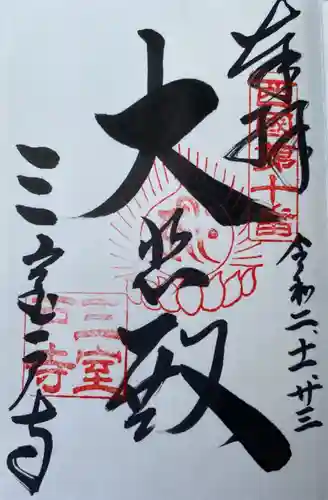 奉拝
西國第十番
令和二、十一、廿三
大悲殿
三室戸寺
三室
戸寺